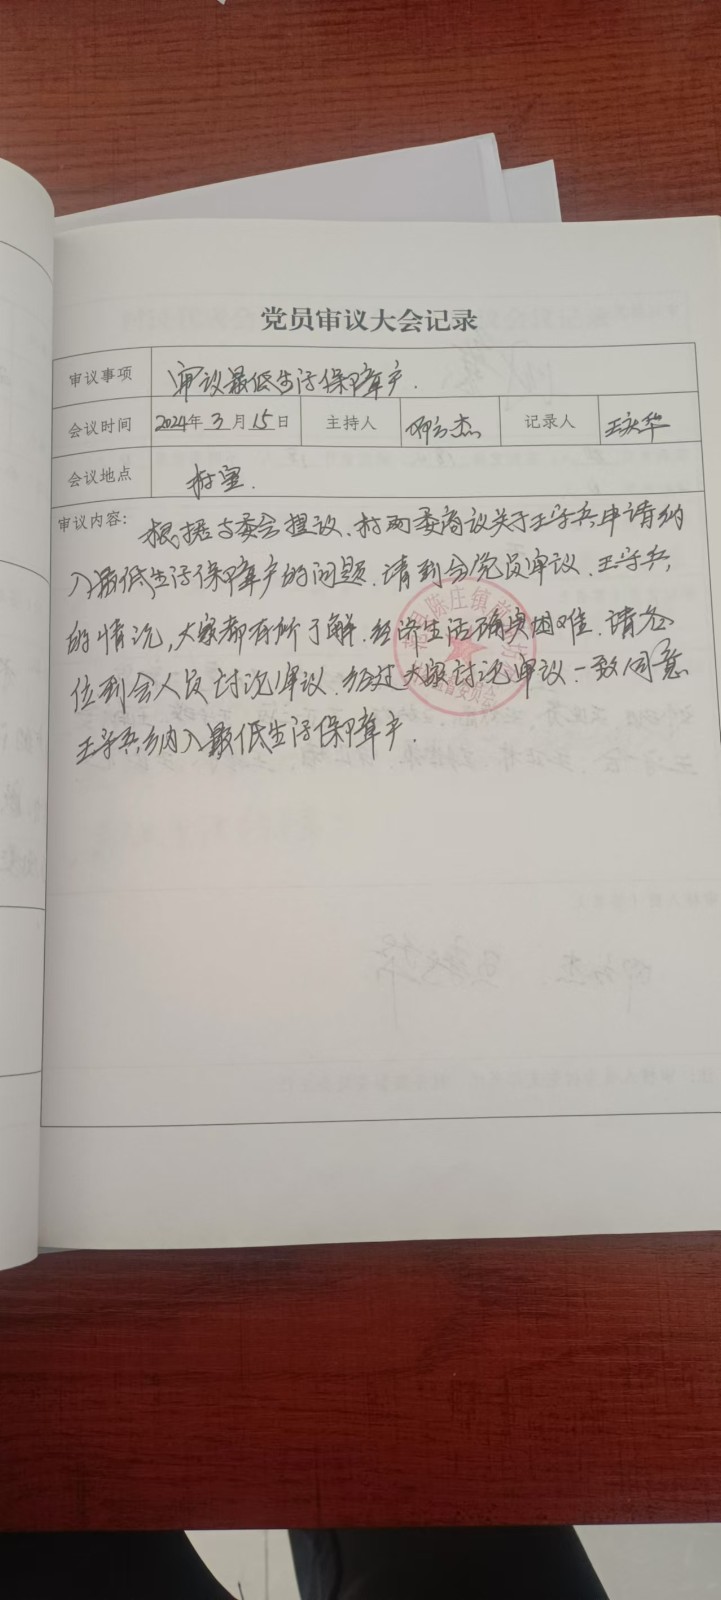 党员审议大会记录
审议事项 审议最低生活保障户.
会议时间 2024年3月15日 主持人 杰 记录人 王庆华
会议地点 村室.
审议内容: 根据支委会提议、村两委商议关于王守兵申请纳
入最低生活保障户的问题.请到会党员审议.王守兵
的情况,大家都有所了解.经济生活确实困难.请各
位到会人员讨论审议.经过大家讨论审议.一致同意
王守兵纳入最低生活保障户.
县陈庄镇
委员会